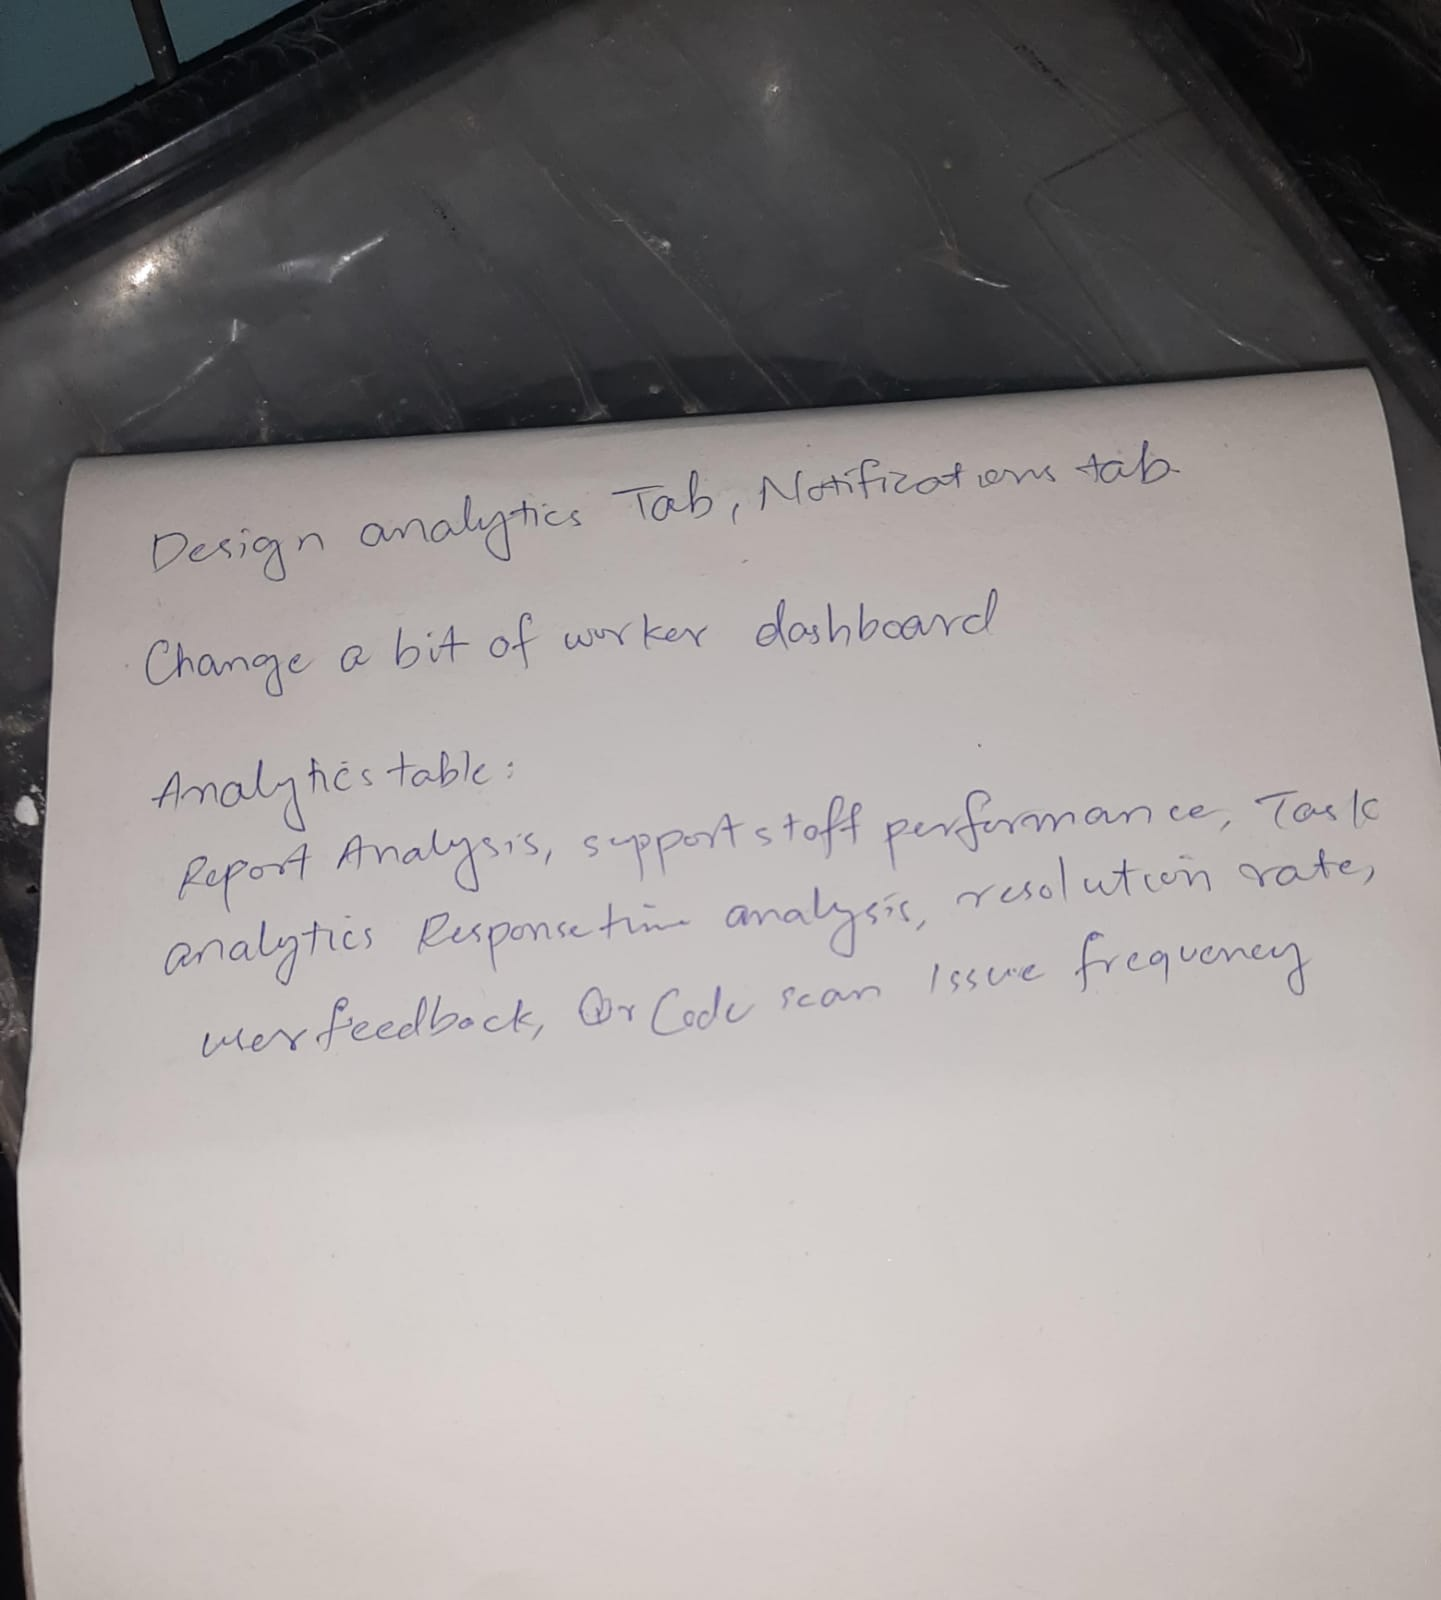 Design analytics Tab, Notifications tab
Change a bit of worker dashboard
Analytics table:
Report Analysis, support staff performance, Task
analytics Response time analysis, resolution rate,
user feedback, Qr Code scan Issue frequency